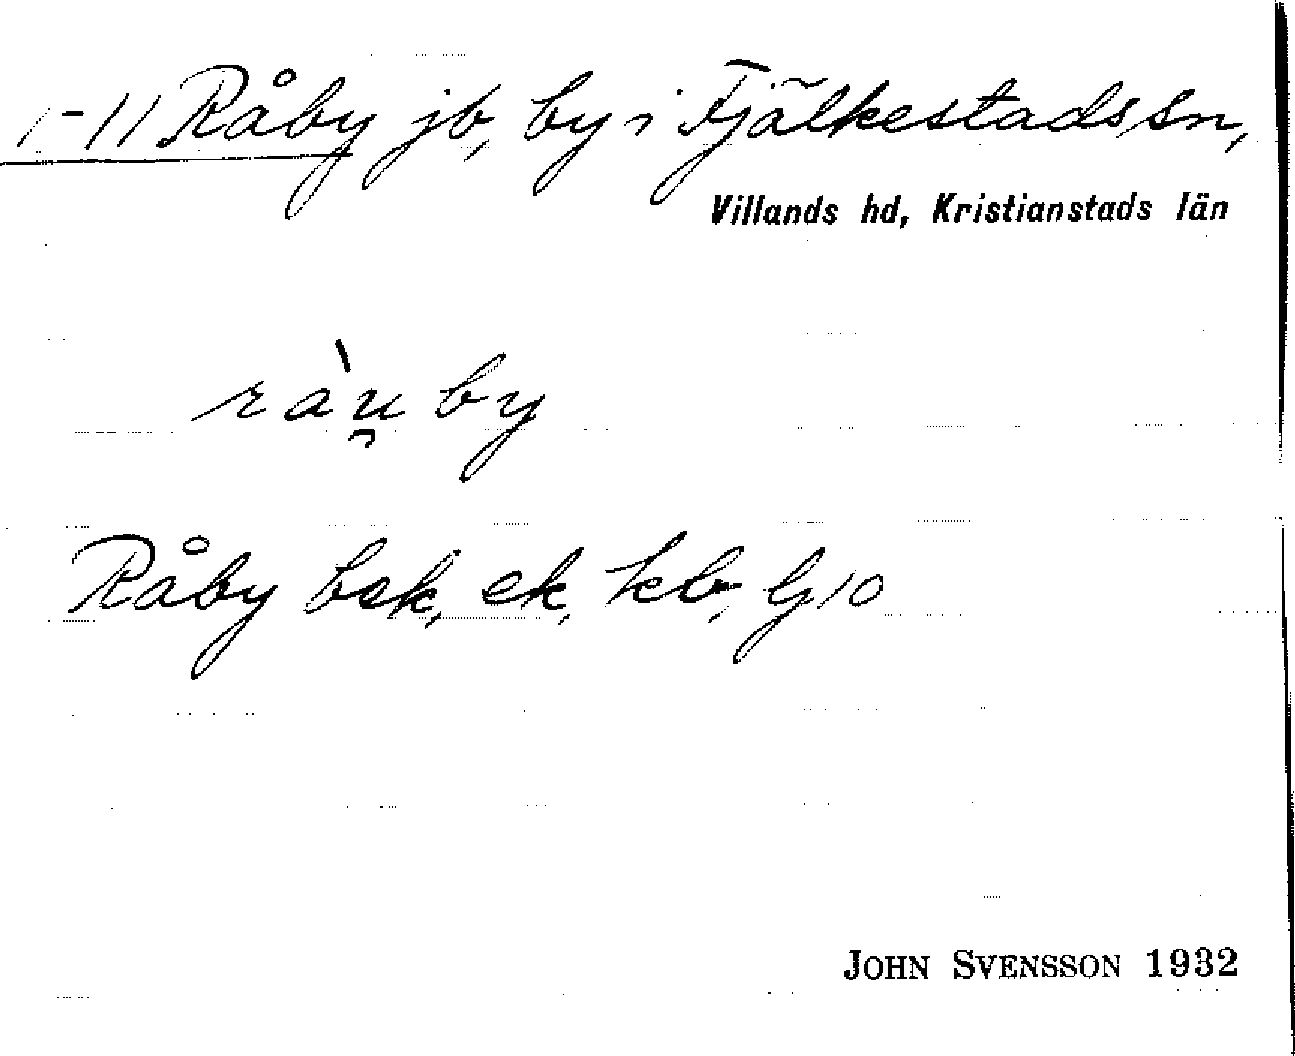 1-11 Råby jb, by i Fjälkestads sn,
Villands hd, Kristianstads län
ràu̯by
Råby bsk, ek, kb, Gj10
JOHN SVENSSON 1932